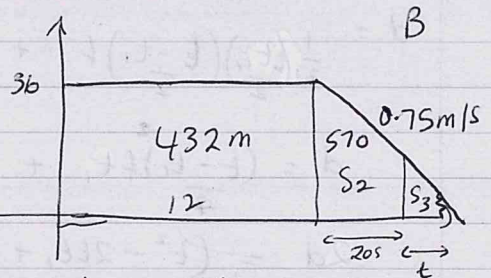 B
36
432 m
570
0.75m/s
S2
S3
12
20s
t